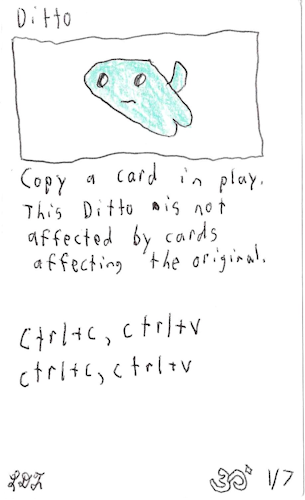 Ditto
Copy a card in play.
This Ditto is not
affected by cards
affecting the original.
Ctrl+c, ctrl+v
ctrl+c, ctrl+v
ॐ 1/7